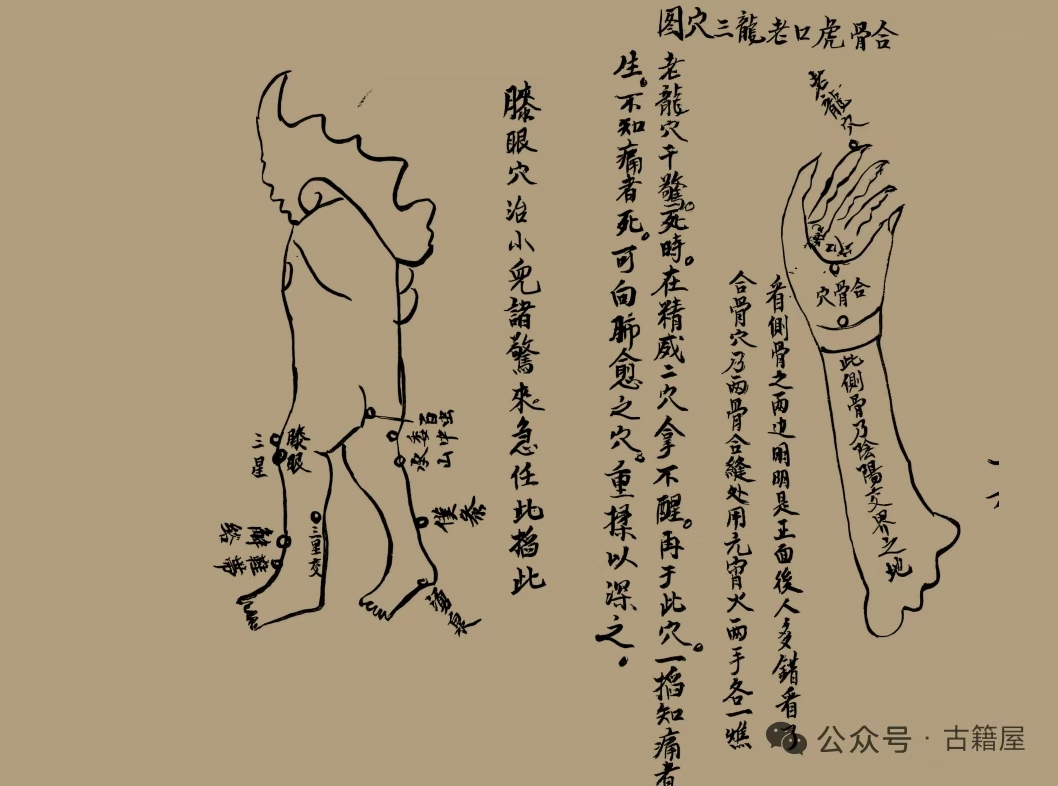 合骨虎口老龍三穴图
老龍穴
合骨穴
此側骨乃陰陽交界之地
看側骨之两边用明是正面後人多錯看了
合骨穴乃两骨合縫处用元宵火两手各一燋
老龍穴干驚死時。在精威二穴拿不醒。再于此穴。一掐知痛者
生。不知痛者死。可向肺愈之穴。重揉以深之。
膝眼穴治小兒諸驚來。急任此掐此
百虫
委中
承山
膝眼
三星
僕参
三里交
解谿
湧泉
公众号·古籍屋